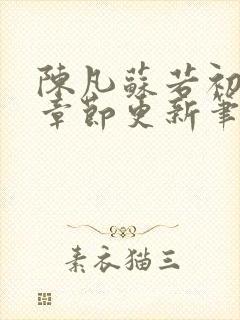 陳凡蘇若初
章節更新筆
素衣猫三